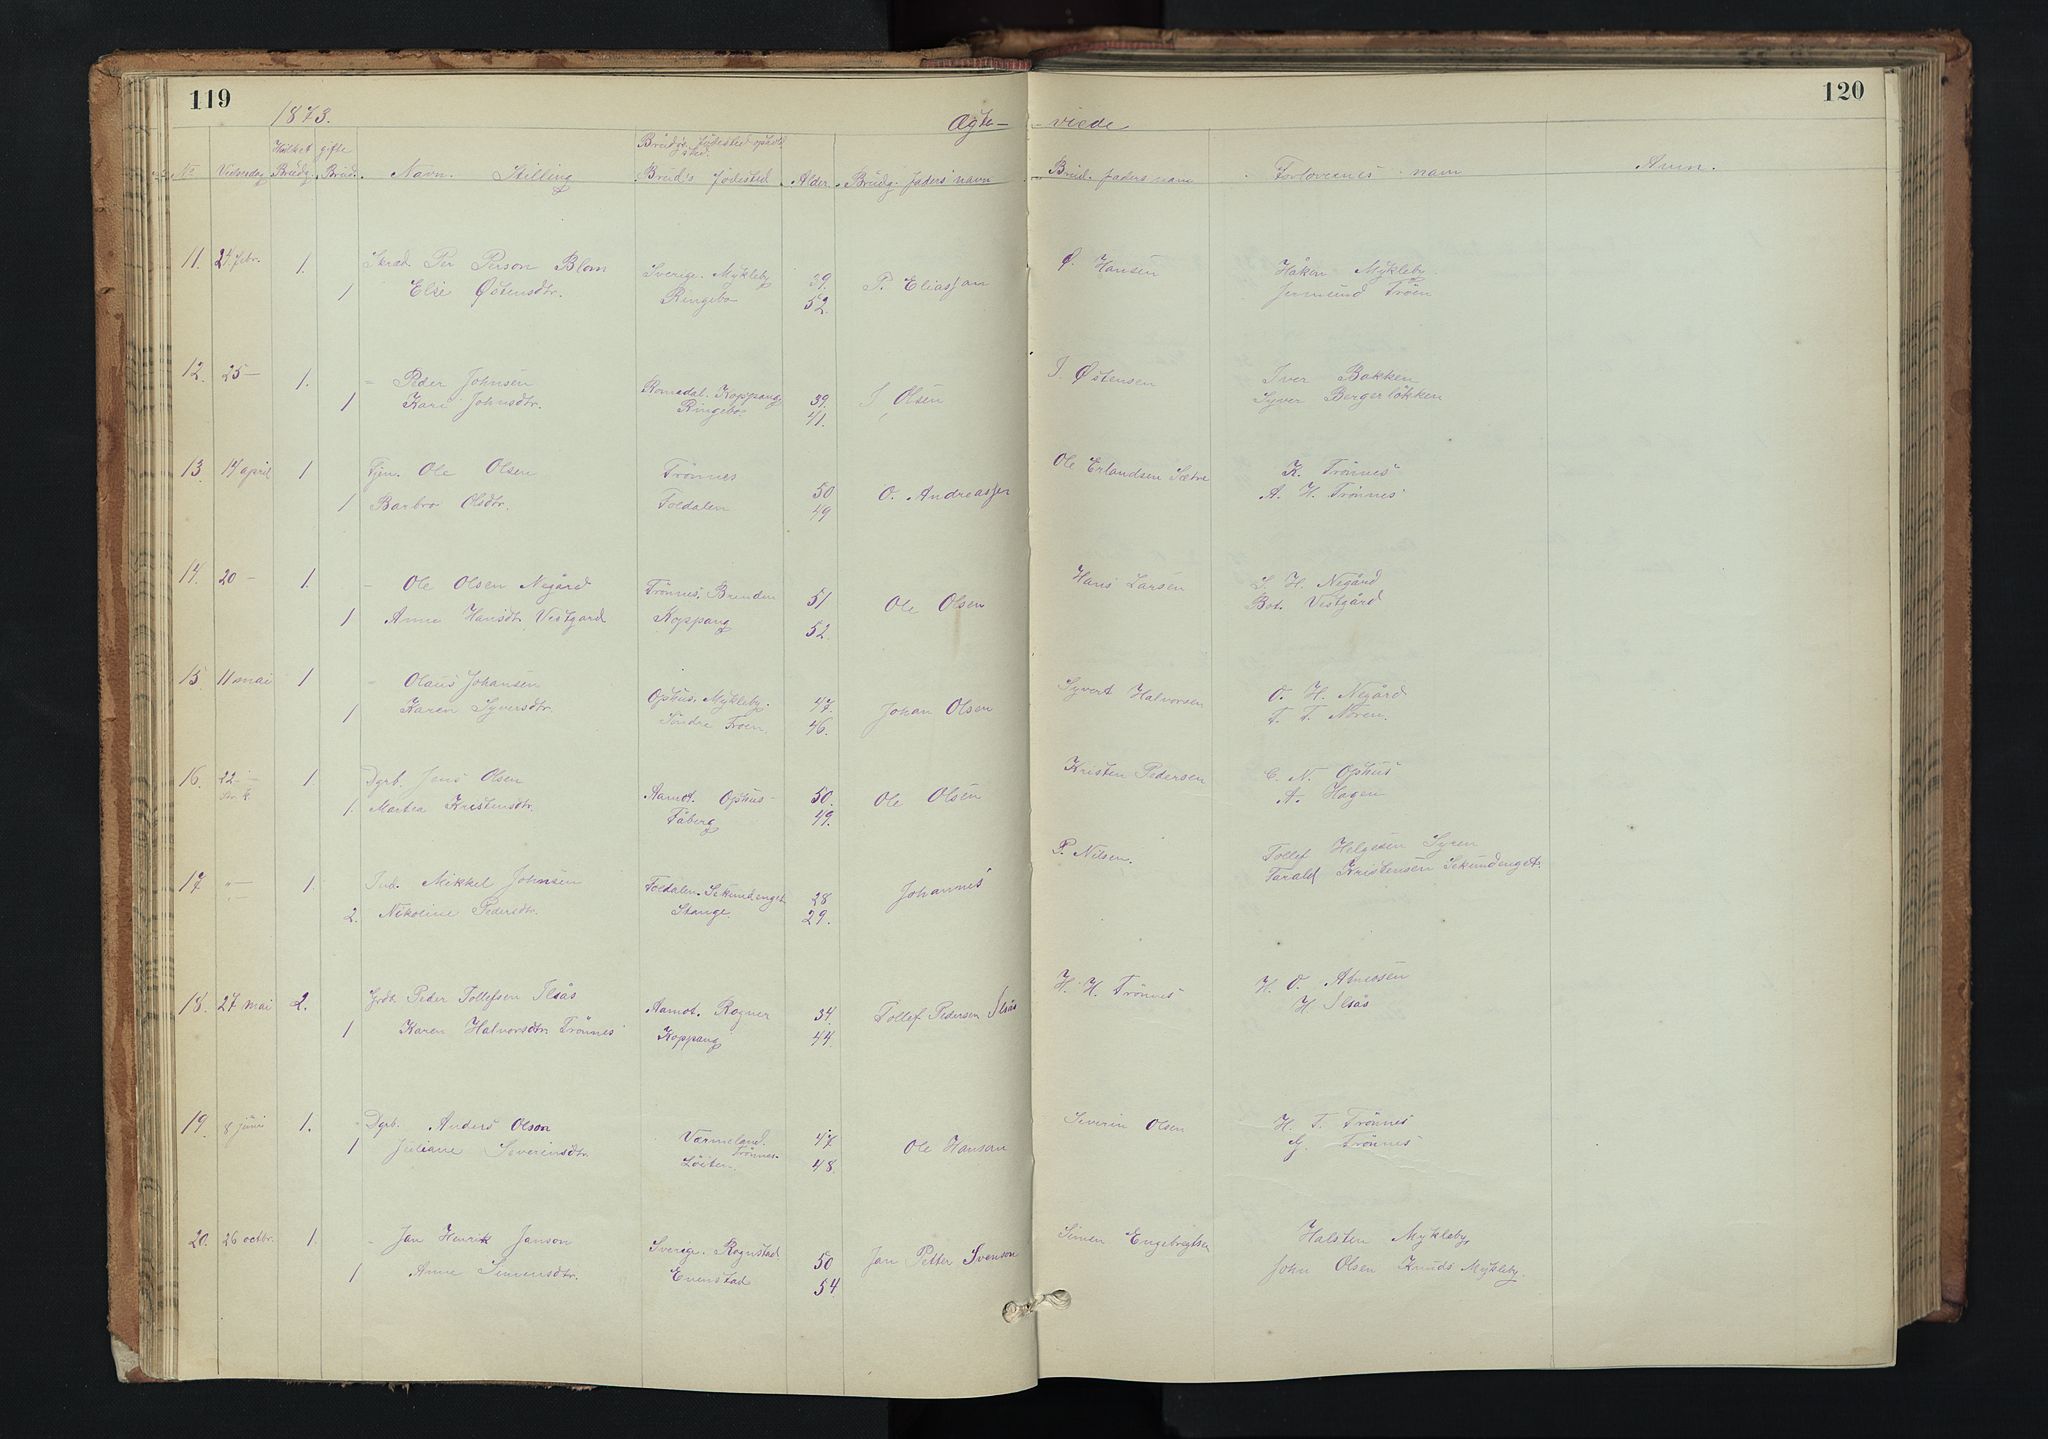 119
120
1873.
Ægte- viede
Hvilket gifte
Brudg. fødested ophold sted.
No Vielsesdag Brudg. Brud. Navn. Stilling Brud's fødested Alder. Brudg. faders navn Brud. faders navn Forlovernes navn Anm.
11. 24 febr. 1. Skræd. Per Person Blom Sverige. Mykleby 39. P. Eliassan Ø. Hansen Håken Mykleby
1 Elie Østensdtr. Ringebo 52. Jermund Trøen
12. 25 — 1. - Peder Johnsen Romedal. Koppang 39. J. Olsen J. Østensen Iver Bakken
1 Kari Johnsdtr. Ringebo 41. Syver Bergerløkken
13. 14 april 1 Tjn. Ole Olsen Trønnes 50 O. Andreassen Ole Erlandsen Sætre K. Trønnes
1 Barbro Olsdtr. Foldalen 49 A. H. Trønnes
14. 20 - 1. - Ole Olsen Negård Trønnes. Brenden 51 Ole Olsen Hans Larsen L. H. Negård
1 Anne Hansdtr. Vestgard Koppang 52. Bot. Vestgård
15. 11 mai 1 - Olaus Johansen Ophus. Mykleby. 47. Johan Olsen Syvert Halvorsen O. H. Negård
1 Karen Syversdtr. Søndre Trøen. 46. T. T. Nøren.
16. 22 — 1. Dgrb. Jens Olsen Aamot. Ophus - 50. Ole Olsen Kristen Pedersen C. N. Ophus
1. Martea Kristensdtr. Fåberg 49. A. Hagen
17 "— 1. Ind. Mikkel Johnsen Foldalen. Sekundenget 28 Johannes P. Nilsen. Tollef Helgesen Syren
2. Nikoline Pedersdtr. Stange 29. Tarald Kristensen Sekundenget.
18. 27 mai 2. Grdb. Peder Tollefsen Ilsås Aamot. Rogner 34. Tollef Pedersen Ilsås H. H. Trønnes H. O. Atneosen
1 Karen Halvorsdtr. Trønnes Koppang 44. H Ilsås
19. 8 juni 1. - Dgrb. Anders Olson Værmeland. Trønnes. 47 Ole Hanson Severin Olsen H. T. Trønnes
1 Juliane Severinsdtr. Løiten. 48. G. Trønnes
20. 26 octbr. 1. - Jan Henrik Janson Sverige. Rognstad 50 Jan Petter Svenson Simen Engebregtsen Halsten Mykleby,
1 Anne Simensdtr. Evenstad 54. John Olsen Knuds Mykleby.